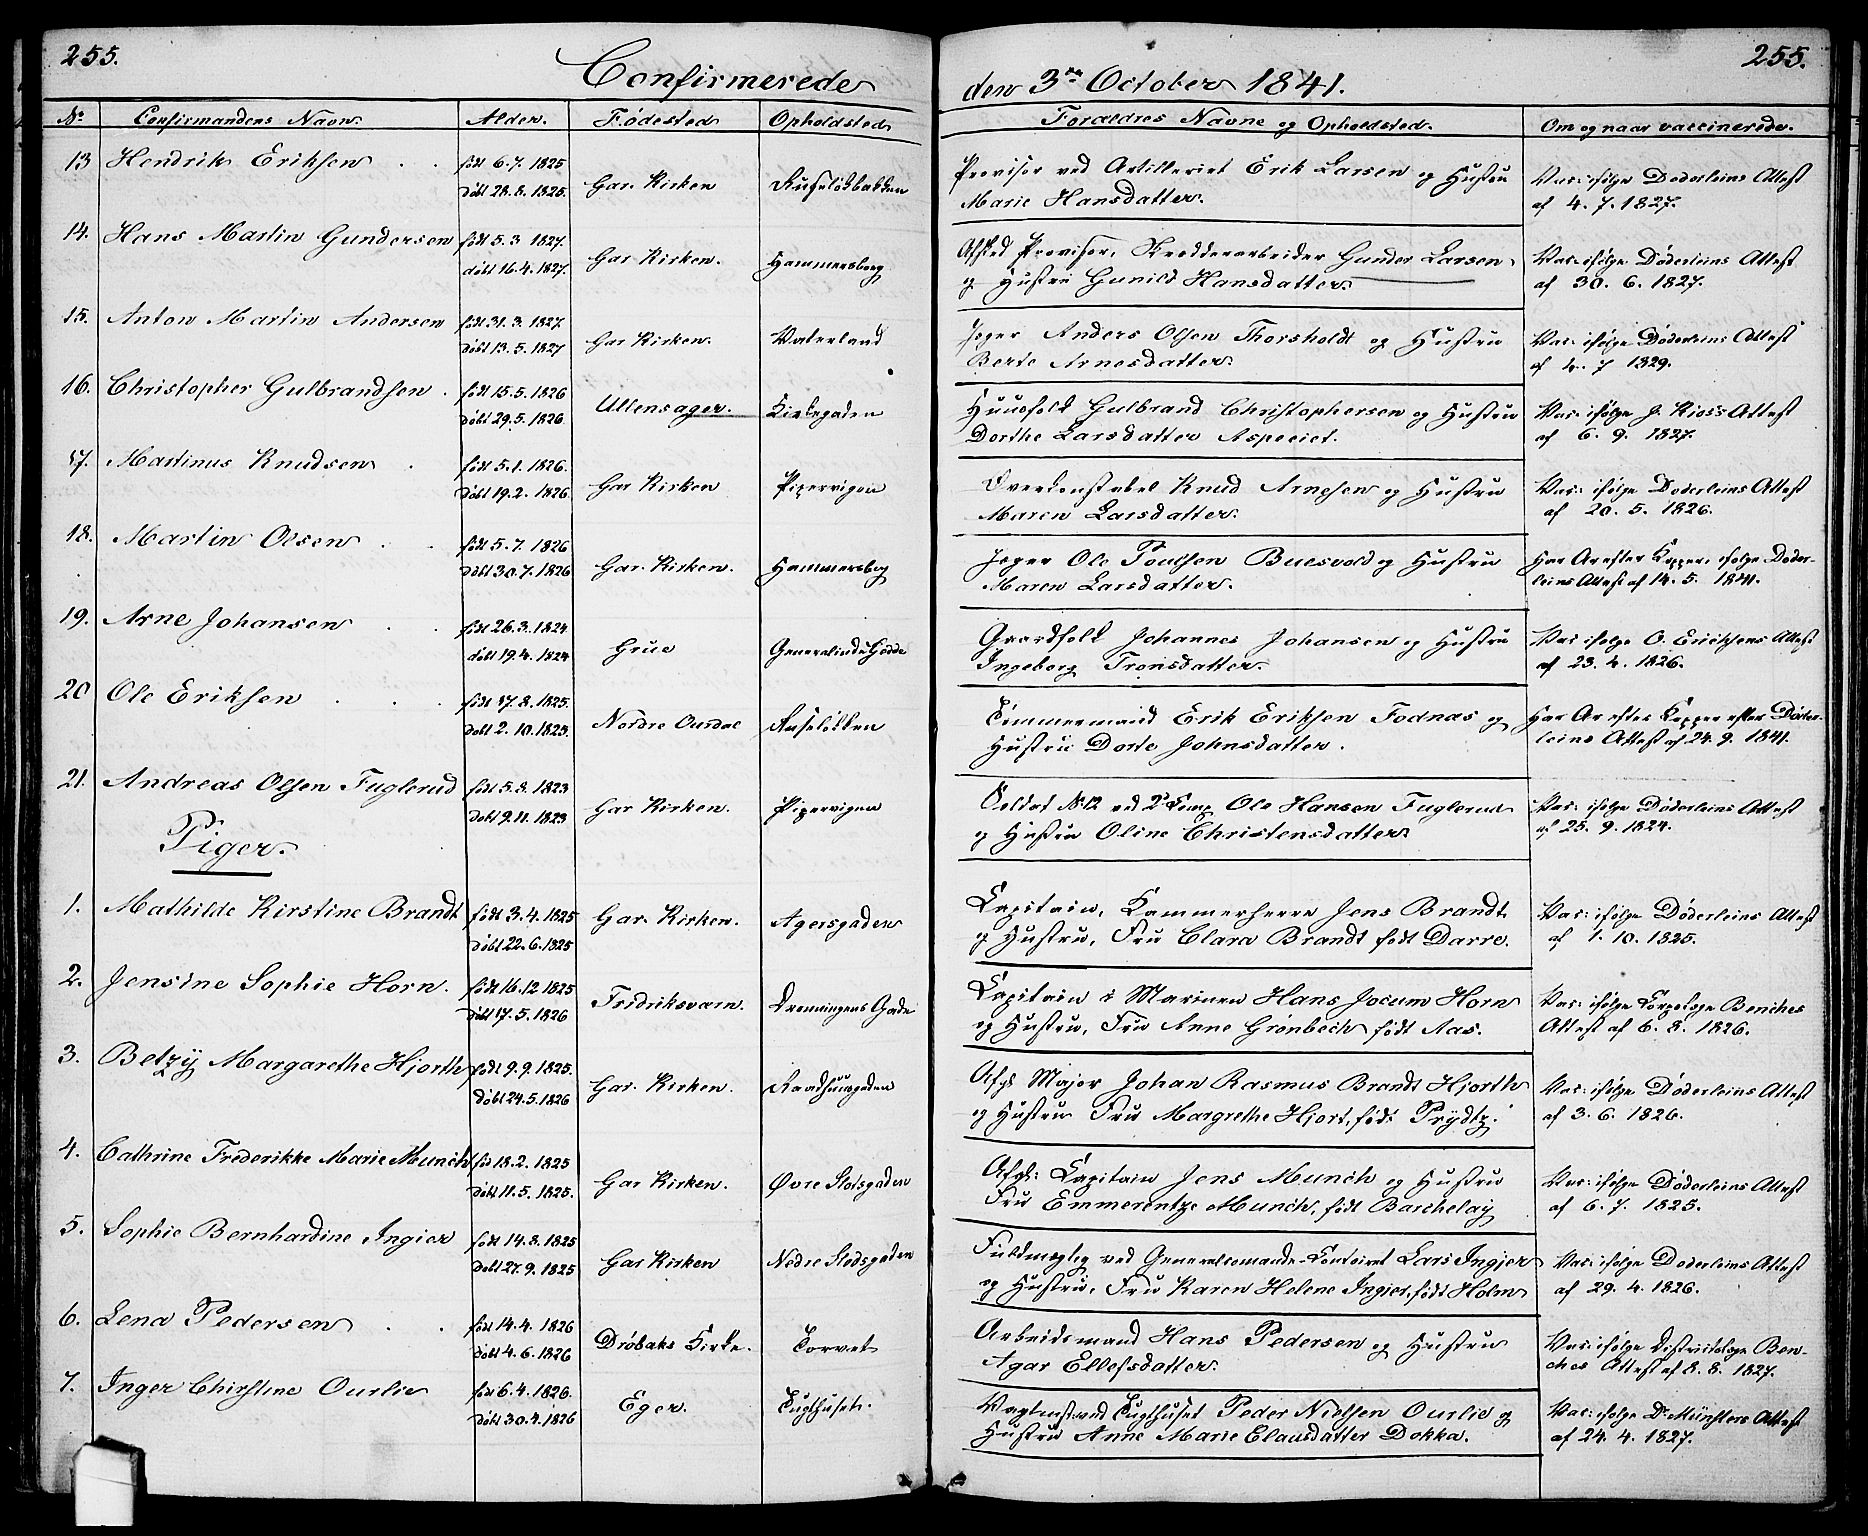 255.
Confirmerede
den 3die October 1841.
255.
No Confirmandens Navn. Alder. Fødested Opholdsted Forældres Navne og Opholdsted. Om og naar vaccinerede.
13 Hendrik Eriksen født 6.7. 1825 Provisor ved Artilleriet Erik Larsen og Hustru Vac: ifølge Døderleins Attest
døbt 28.8. 1825. Gar. Kirken Ruseløkbakken Marie Hansdatter. af 4. 7. 1827.
14. Hans Martin Gundersen født 5.3 1827. Afsked Provisor, Gunder Larsen Vac: ifølge Døderleins Attest
døbt 16.4. 1827. Gar. Kirken. Hammersborg og Hustru Gunild Hansdatter. af 30. 6. 1827.
15. Anton Martin Andersen født 31. 3. 1827. Jeger Anders Olsen Thorsholdt og Hustru Vac: ifølge Døderleins Attest
døbt 13. 5. 1827 Gar Kirken. Vaterland Berte Arnesdatter. af 4. 7 1829.
16. Christopher Gulbrandsen. født 15.5. 1826 Huusfolk Gulbrand Christophersen og Hustru Vac: ifølge J. Attest
døbt 29.5. 1826 Ullensager. Kirkegaden Dorthe Larsdatter af 6. 9. 1827.
17. Martinus Knudsen født 5.1. 1826. Overkonstabel Knud Arnesen og Hustru Vac: ifølge Døderleins Attest
døbt 19.2. 1826 Gar Kirken Pipervigen Maren Larsdatter. af 20. 5. 1826.
18. Martin Olsen født 5.7. 1826 Jeger Ole Poulsen Buesvold og Hustru Har Ar efter Kopper, ifølge Døder-
døbt 30.7. 1826 Gar. Kirken. Hammersbog Maren Larsdatter. leins Attest af 14. 5. 1841.
19. Arne Johansen født 26.3. 1824 Gaardfolk Johannes Johansen og Hustru Vac ifølge O. Erichsens Attest
døbt 19.4. 1824 Grue Ingeborg Tronsdatter. af 23. 4. 1826.
20 Ole Eriksen født 17.8. 1825. Tømmermand Erik Eriksen Fodnas og Har Ar efter Kopper efter Døder-
døbt 2. 10. 1825. Nordre Ourdal Ruseløkken Hustru Dorte Johnsdatter. leins Attest af 24. 9. 1841.
21. Andreas Olsen Fuglerud født 5.8. 1823 Soldat No 12 ved 2d Comp. Ole Hansen Fuglerud Vac: ifølge Døderleins Attest
døbt 9.11. 1823 Gar Kirken. Pipervigen og Hustru Oline Christensdatter af 25. 9. 1824.
Piger.
1. Mathilde Kirstine Brandt født 3.4. 1825 Capitain, Kammerherre Jens Brandt Vac: ifølge Døderleins Attest
døbt 22.6. 1825 Gar. Kirken. Agersgaden og Hustru, Fru Clara Brandt født Darre. af 1. 10. 1825.
2. Jensine Sophie Horn. født 16.12 1825 Capitain i Marinen Hans Jocum Horn Vac: ifølge Corpslæge Benches
døbt 17. 5. 1826 Fridriksværn. Dronningens Gade og Hustru, Fru Anne Grønbech født Aas. Attest af 6. 8. 1826.
3. Betzy Margarethe Hjorth født 9.9. 1825. Afgk Major Johan Rasmus Brandt Hjorth Vac: ifølge Døderleins Attest
døbt 24.5. 1826 Gar. Kirken. Raadhuusgaden og Hustru Fru Margrethe Hjort, født Prydtz. af 3. 6. 1826.
4. Cathrine Frederikke Marie Munch fød 18. 2. 1825 Afgk: Capitain Jens Munch og Hustru Vac: ifølge Døderleins Attest
døbt 11.5. 1825. Gar Kirken. Øvre Slotsgaden Fru Emmerentze Munch, født Barchelay af 6. 7. 1825.
5. Sophie Bernhardine Ingier født 14.8. 1825 Fuldmægtig ved Generalcomando-Contoiret Lars Ingier Vac: ifølge Døderleins Attest
døbt 27.9. 1825 Gar Kirken Nedre Slodsgaden og Hustru, Fru Karen Helene Ingier, født Holm af 29. 4. 1826.
6. Lena Pedersen født 14.4. 1826 Arbeidsmand Hans Pedersen og Hustru Vac: ifølge Districtslæge Ben-
døbt 4. 6. 1826 Drøbaks Kirke. Torvet Agar Ellefsdatter. ches Attest af 8. 8. 1827.
7. Inger Chirstine Ourlie fød 6.4. 1826. Vagtmst. ved Tugthuset Peder Nielsen Ourlie og Vac: ifølge Dr Münsters Attest
døbt 30.4. 1826 Eger. Tugthuset. Hustru Anne Marie Clausdatter Dokka. af 24. 4. 1827.